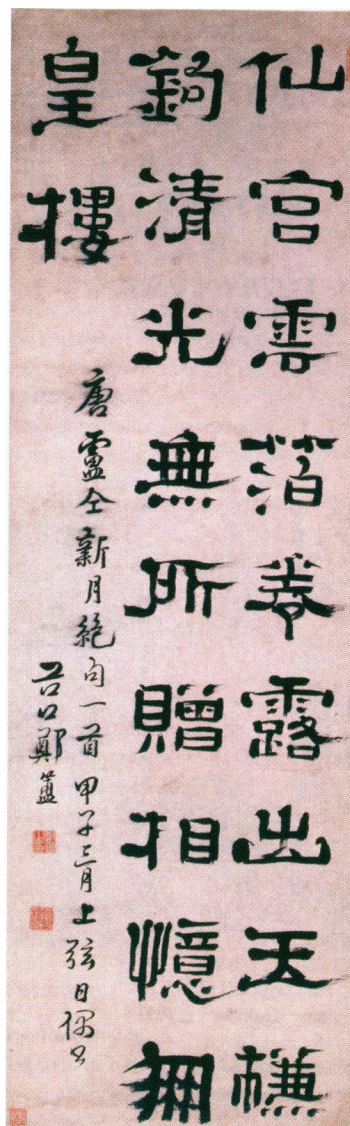 仙宮雲箔卷露出玉槏
鉤清光無所贈相憶鳳
皇樓
唐盧仝新月絕句一首甲子三月上弦日偶書
谷口鄭簠